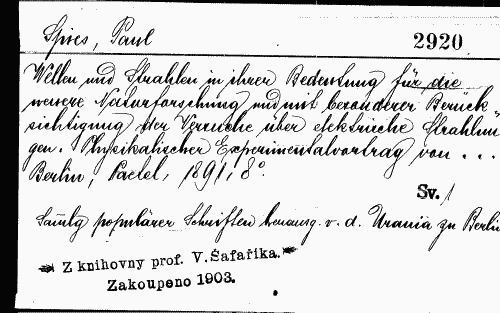 Spies, Paul
2920
Wellen und Strahlen in ihrer Bedeutung für die
neuere Naturforschung und mit besonderer Berück
sichtigung der Versuche über elektrische Strahlun
gen. Physikalischer Experimentalvortrag von ...
Berlin, Paetel, 1891, 8°.
Sv. /
Samlg populärer Schriften herausg. v. d. Urania zu Berlin
Z knihovny prof. V. Šafaříka.
Zakoupeno 1903.